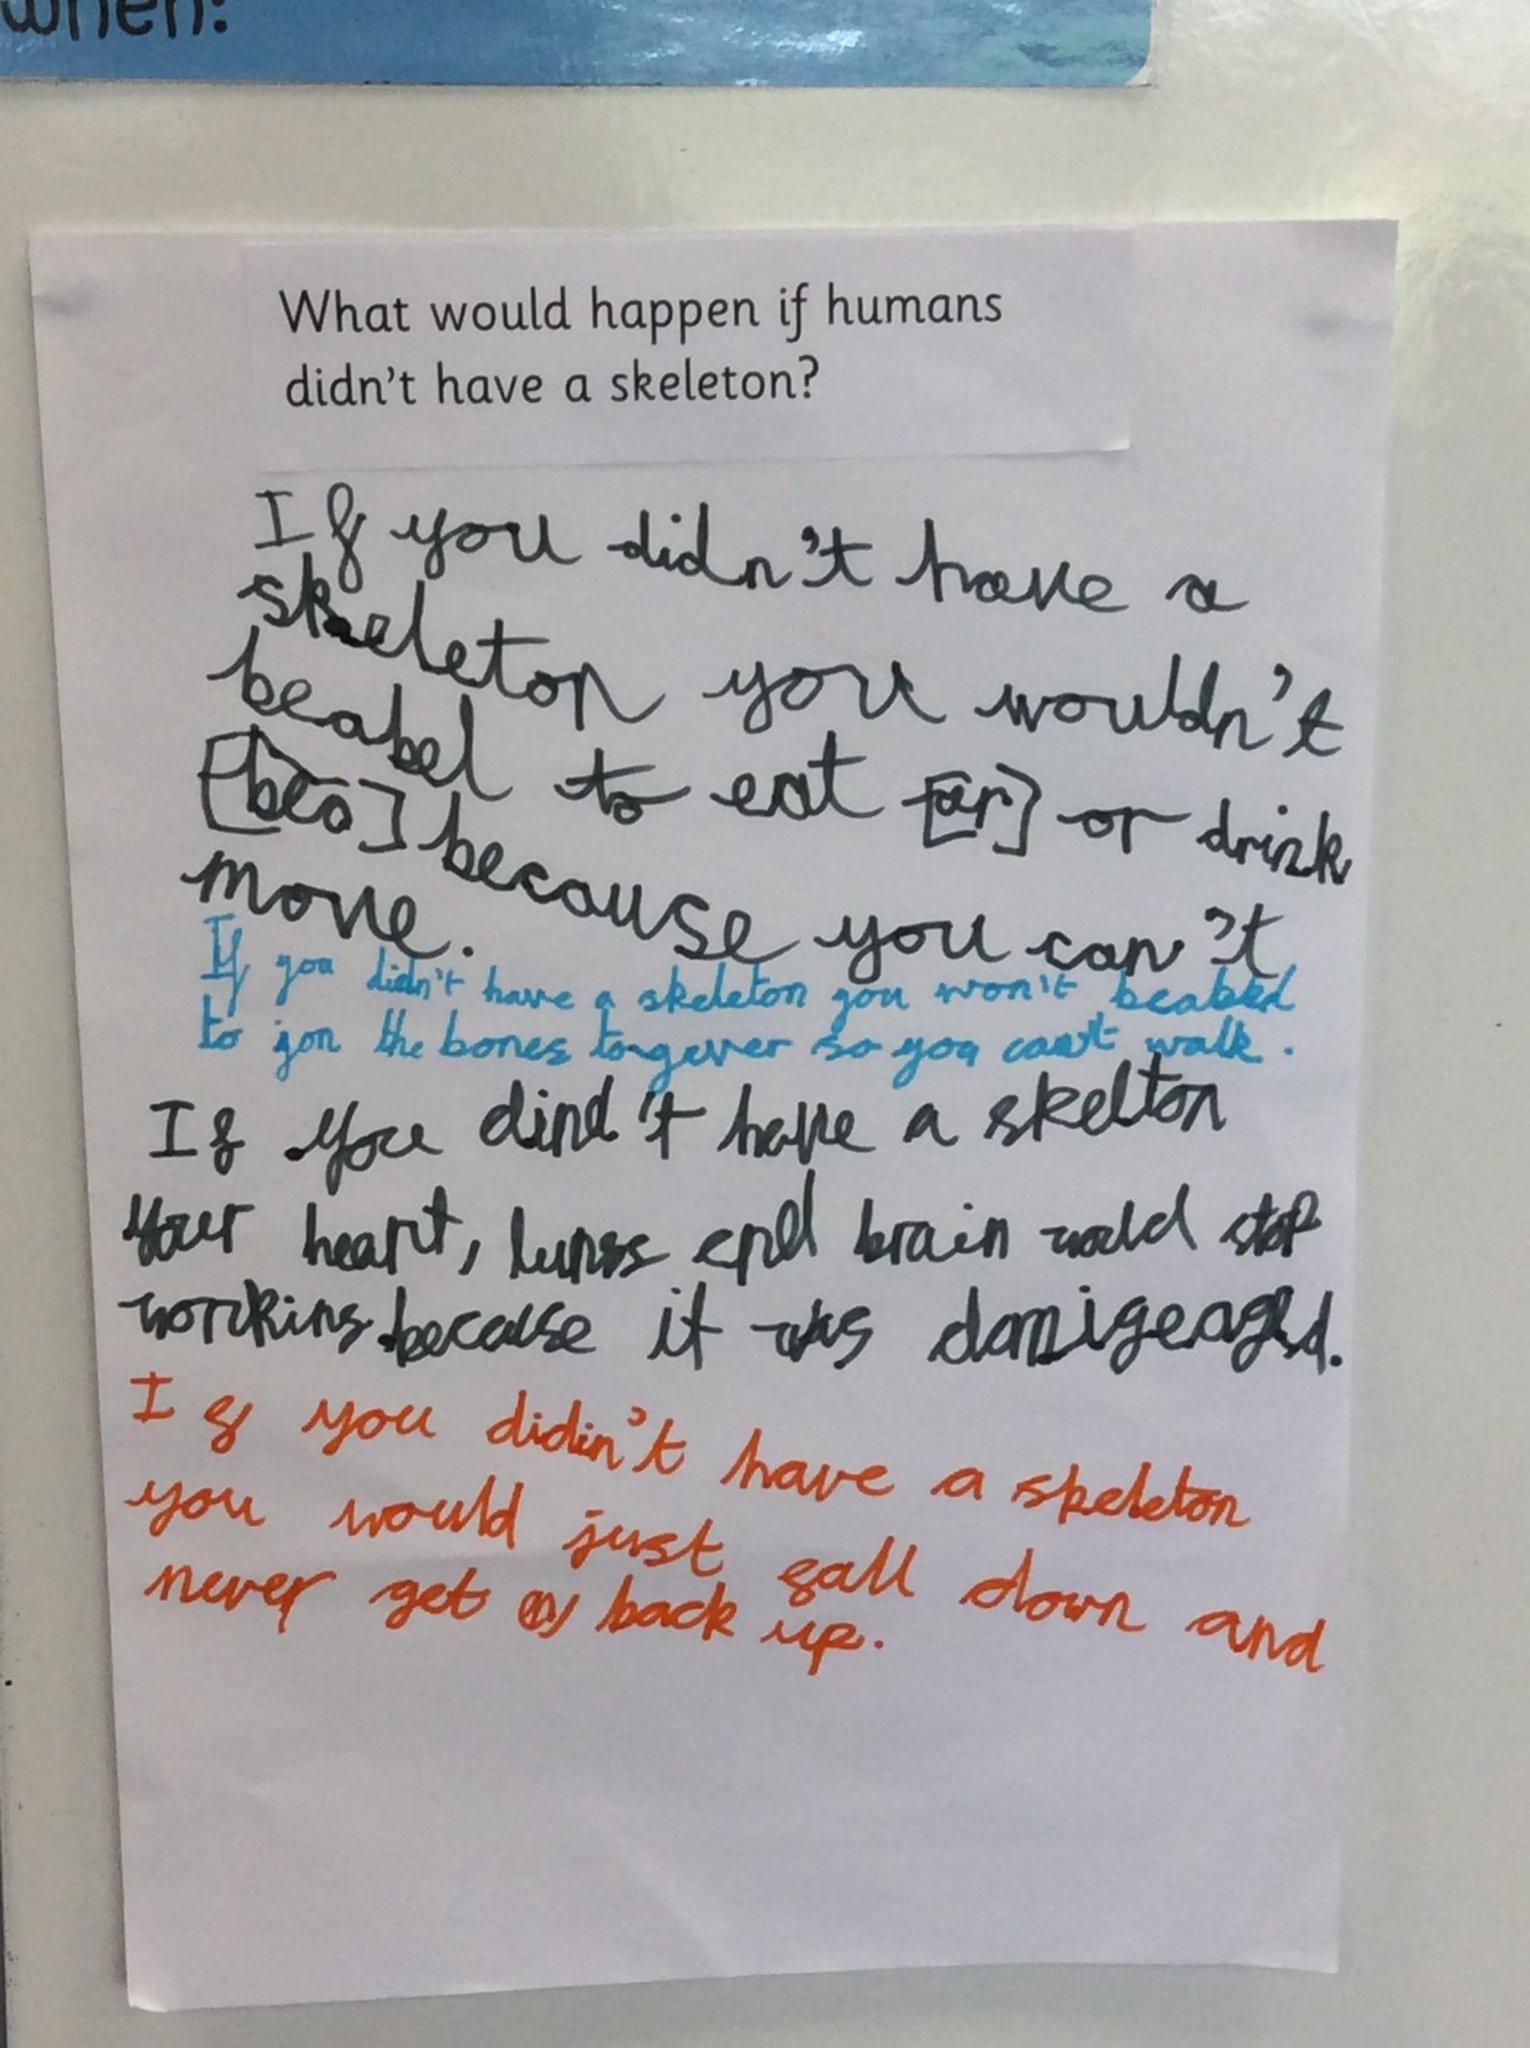 when:
What would happen if humans
didn't have a skeleton?
If you didn't have a
skeleton you wouldn't
beabel to eat [or] or drink
[beo] because you can't
move.
If you didn't have a skeleton you won't beabel
to jon the bones togever so you can't walk.
If you dind't have a skelton
your heart, lungs end brain would stop
worcking because it was damigeaged.
If you didin't have a skeleton
you would just fall down and
never get back up.